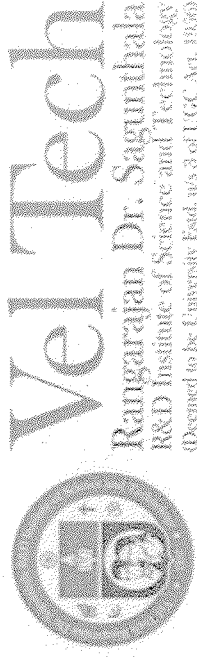 Vel Tech
Rangarajan Dr. Sagunthala
R&D Institute of Science and Technology
(Deemed to be University Estd. u/s 3 of UGC Act, 1956)